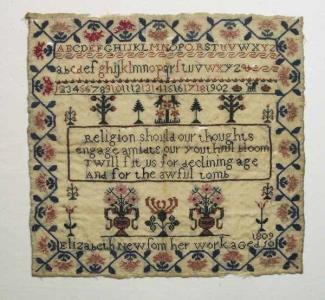 ABCDEFGHIJKLMNOPQRSTUVWXYZ
abcdefghijklmnopqrstuvwxyz
1234567891011121314151617181902
Religion should our thoughts
engage amidts our youthful bloom
Twill fit us for declining age
And for the awful tomb
1809
Elizabeth Newsom her work aged 10